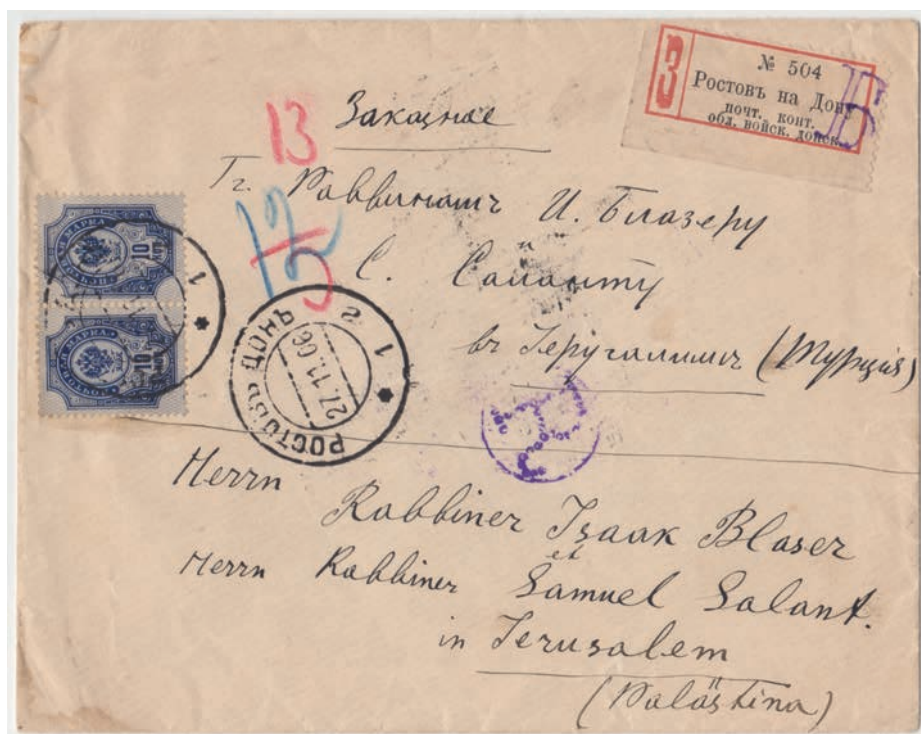 З
№ 504
Ростовъ на Дону
почт. конт.
обл. войск. донск.
Б
Заказное
13
12
Гг. Раввинамъ И. Блазеру
и
С. Саланту
въ Іерусалимъ (Турція)
10
10
РОСТОВЪ ДОНЪ
27.11.06
1
1 г
Herrn
Rabbiner Isaak Blaser
et
Herrn Rabbiner Samuel Salant.
in Jerusalem
(Palästina)